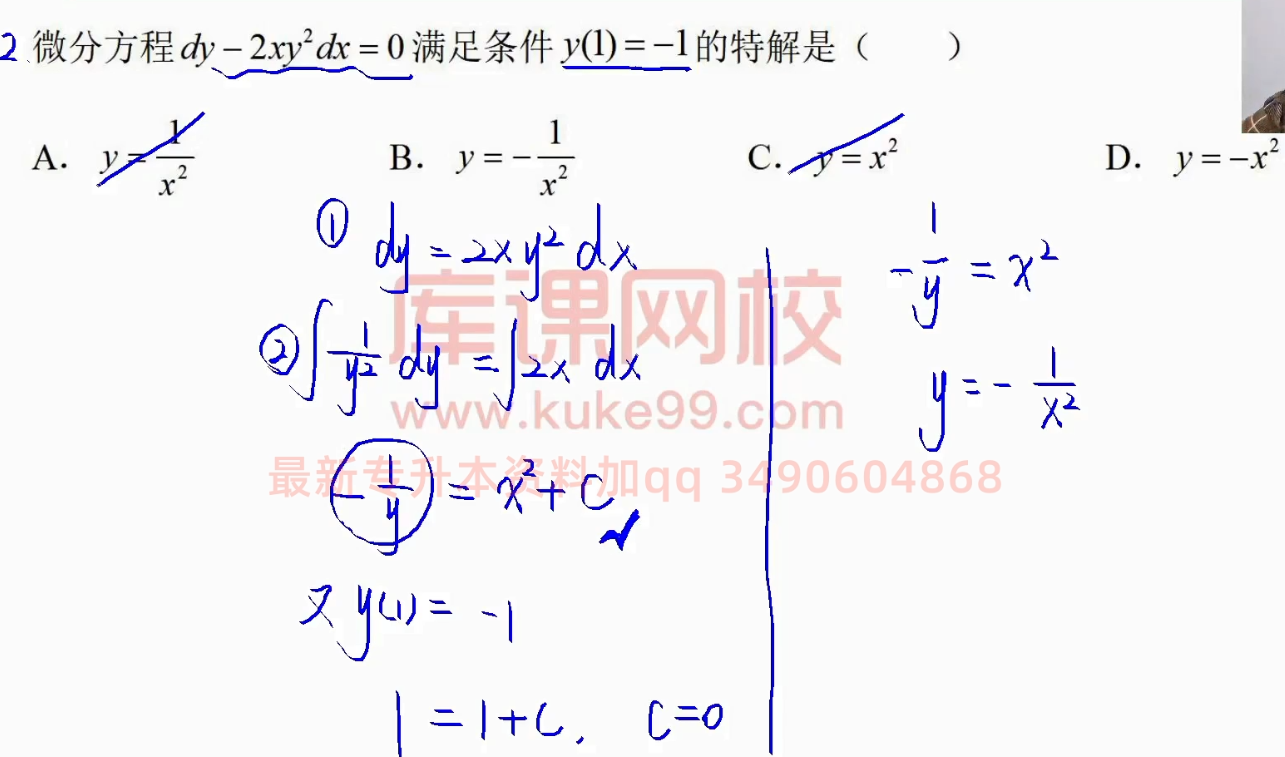 2 微分方程 dy − 2xy²dx = 0 满足条件 y(1) = −1 的特解是（　　）
A. y = 1/x²　　B. y = −1/x²　　C. y = x²　　D. y = −x²
① dy = 2xy² dx
② ∫ 1/y² dy = ∫ 2x dx
−1/y = x² + C
又 y(1) = −1
1 = 1 + C, C = 0
−1/y = x²
y = −1/x²
库课网校
www.kuke99.com
最新专升本资料加qq 3490604868